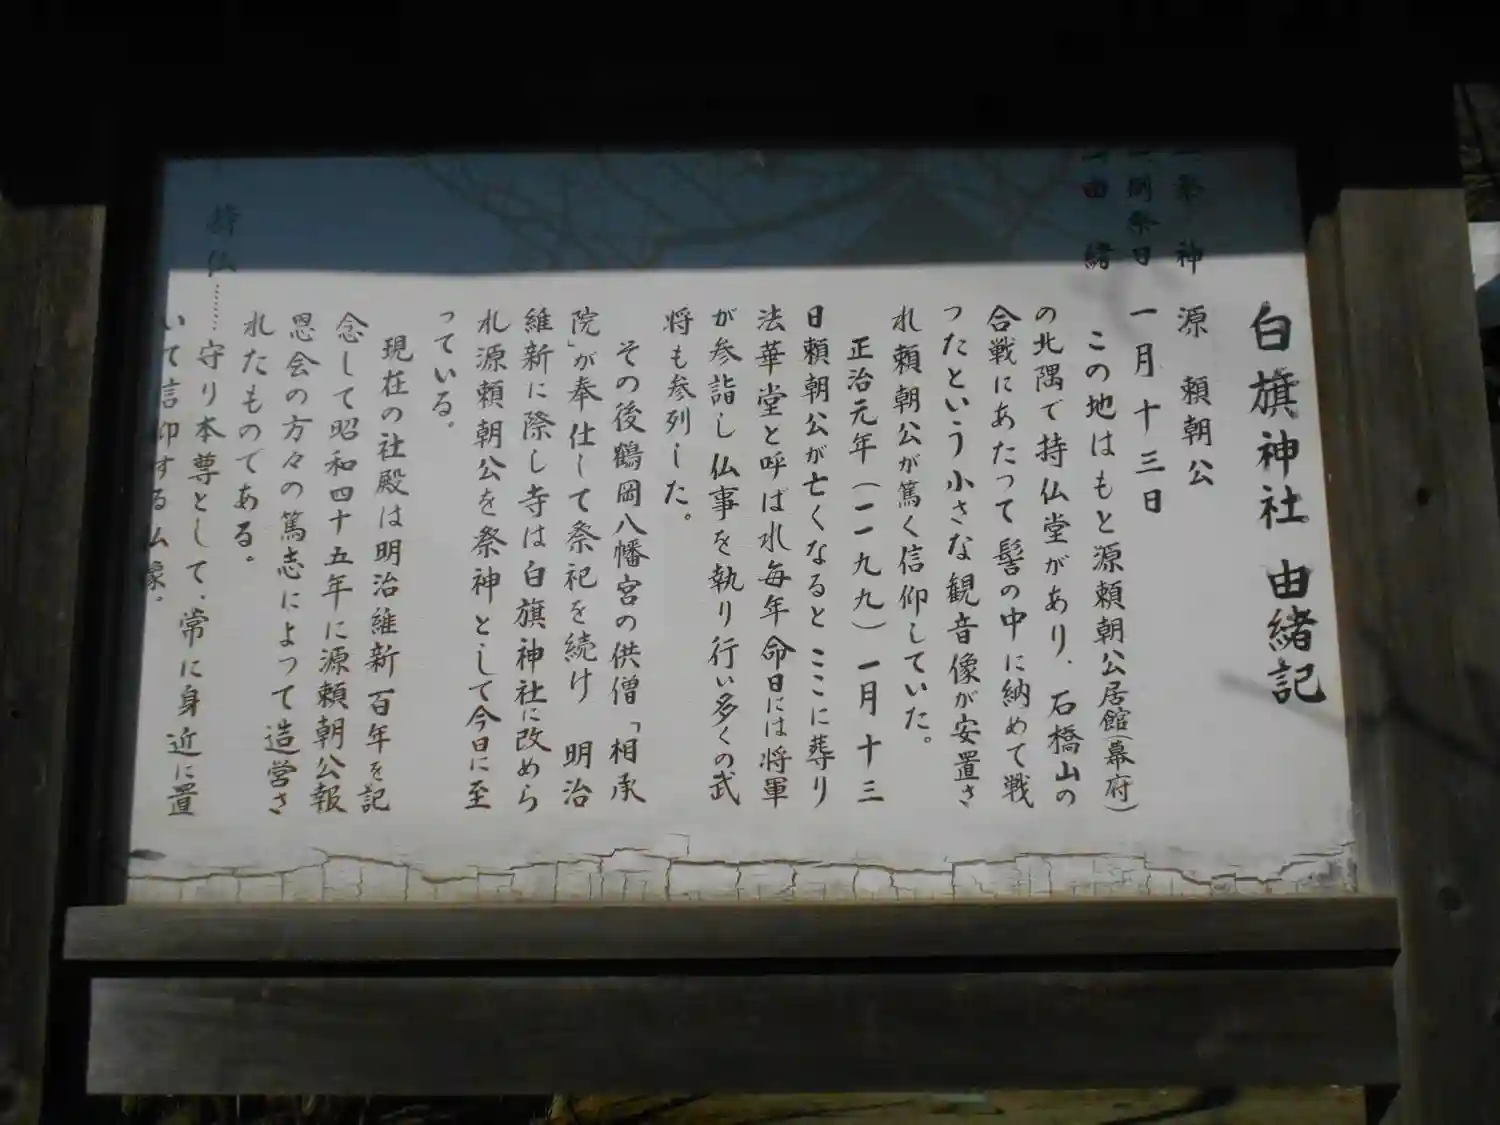 白旗神社 由緒記
一祭神 源 頼朝公
一例祭日 一月十三日
一由緒 この地はもと源頼朝公居館(幕府)
の北隅で持仏堂があり、石橋山の
合戦にあたって髻の中に納めて戦
ったという小さな観音像が安置さ
れ頼朝公が篤く信仰していた。
正治元年(一一九九)一月十三
日頼朝公が亡くなるとここに葬り
法華堂と呼ばれ毎年命日には将軍
が参詣し仏事を執り行い多くの武
将も参列した。
その後鶴岡八幡宮の供僧「相承
院」が奉仕して祭祀を続け 明治
維新に際し寺は白旗神社に改めら
れ源頼朝公を祭神として今日に至
っている。
現在の社殿は明治維新百年を記
念して昭和四十五年に源頼朝公報
恩会の方々の篤志によって造営さ
れたものである。
持仏……守り本尊として、常に身近に置
いて信仰する仏像。